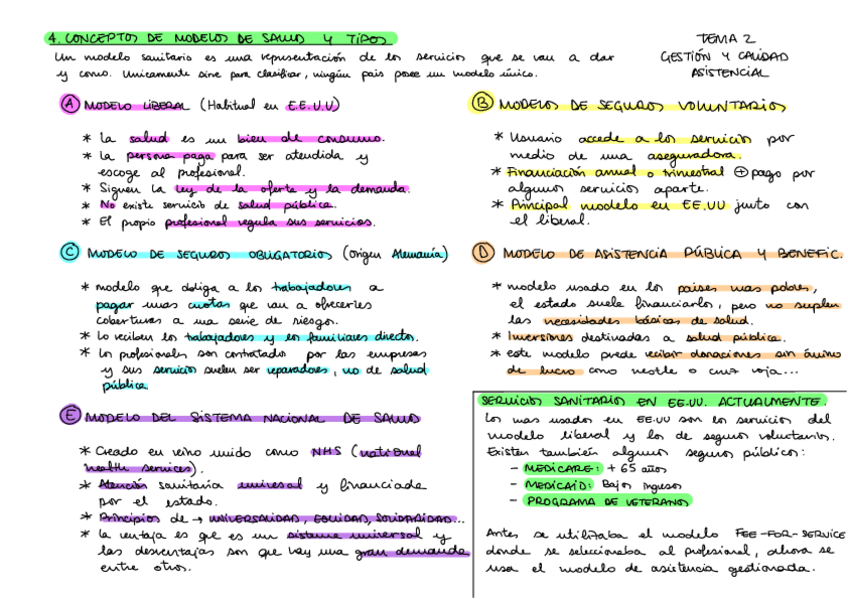 4. CONCEPTOS DE MODELOS DE SALUD Y TIPOS
TEMA 2
GESTIÓN Y CALIDAD
ASISTENCIAL
Un modelo sanitario es una representación de los servicios que se van a dar
y como. Unicamente sirve para clasificar, ningún pais posee un modelo único.
A MODELO LIBERAL (Habitual en E.E.U.U)
* La salud es un bien de consumo.
* La persona paga para ser atendida y
escoge al profesional.
* Siguen la ley de la oferta y la demanda.
* No existe servicio de salud pública.
* El propio profesional regula sus servicios.
B MODELOS DE SEGUROS VOLUNTARIOS
* Usuario accede a los servicios por
medio de una aseguradora.
* Financiación anual o trimestral + pago por
algunos servicios aparte.
* Principal modelo en EE.UU junto con
el liberal.
C MODELO DE SEGUROS OBLIGATORIOS (origen Alemania)
* modelo que obliga a los trabajadores a
pagar unas cuotas que van a ofrecerles
coberturas a una serie de riesgos.
* Lo reciben los trabajadores y los familiares directos.
* Los profesionales son contratados por las empresas
y sus servicios suelen ser reparadores, no de salud
pública
D MODELO DE ASISTENCIA PÚBLICA Y BENEFIC.
* modelo usado en los paises mas pobres,
el estado suele financiarlos, pero no suplen
las necesidades básicas de salud.
* Inversiones destinadas a salud pública.
* este modelo puede recibir donaciones sin ánimo
de lucro como nestle o cruz roja...
E MODELO DEL SISTEMA NACIONAL DE SALUD
* Creado en reino unido como NHS (national
health services).
* Atención sanitaria universal y financiada
por el estado.
* Principios de → UNIVERSALIDAD, EQUIDAD, SOLIDARIDAD...
* la ventaja es que es un sistema universal y
las desventajas son que hay una gran demanda
entre otros.
SERVICIOS SANITARIOS EN EE.UU. ACTUALMENTE.
Los mas usados en EE.UU son los servicios del
modelo liberal y los de seguros voluntarios.
Existen también algunos seguros públicos:
- MEDICARE: + 65 años
- MEDICAID: Bajos ingresos
- PROGRAMA DE VETERANOS
Antes se utilizaba el modelo FEE-FOR-SERVICE
donde se seleccionaba al profesional, ahora se
usa el modelo de asistencia gestionada.